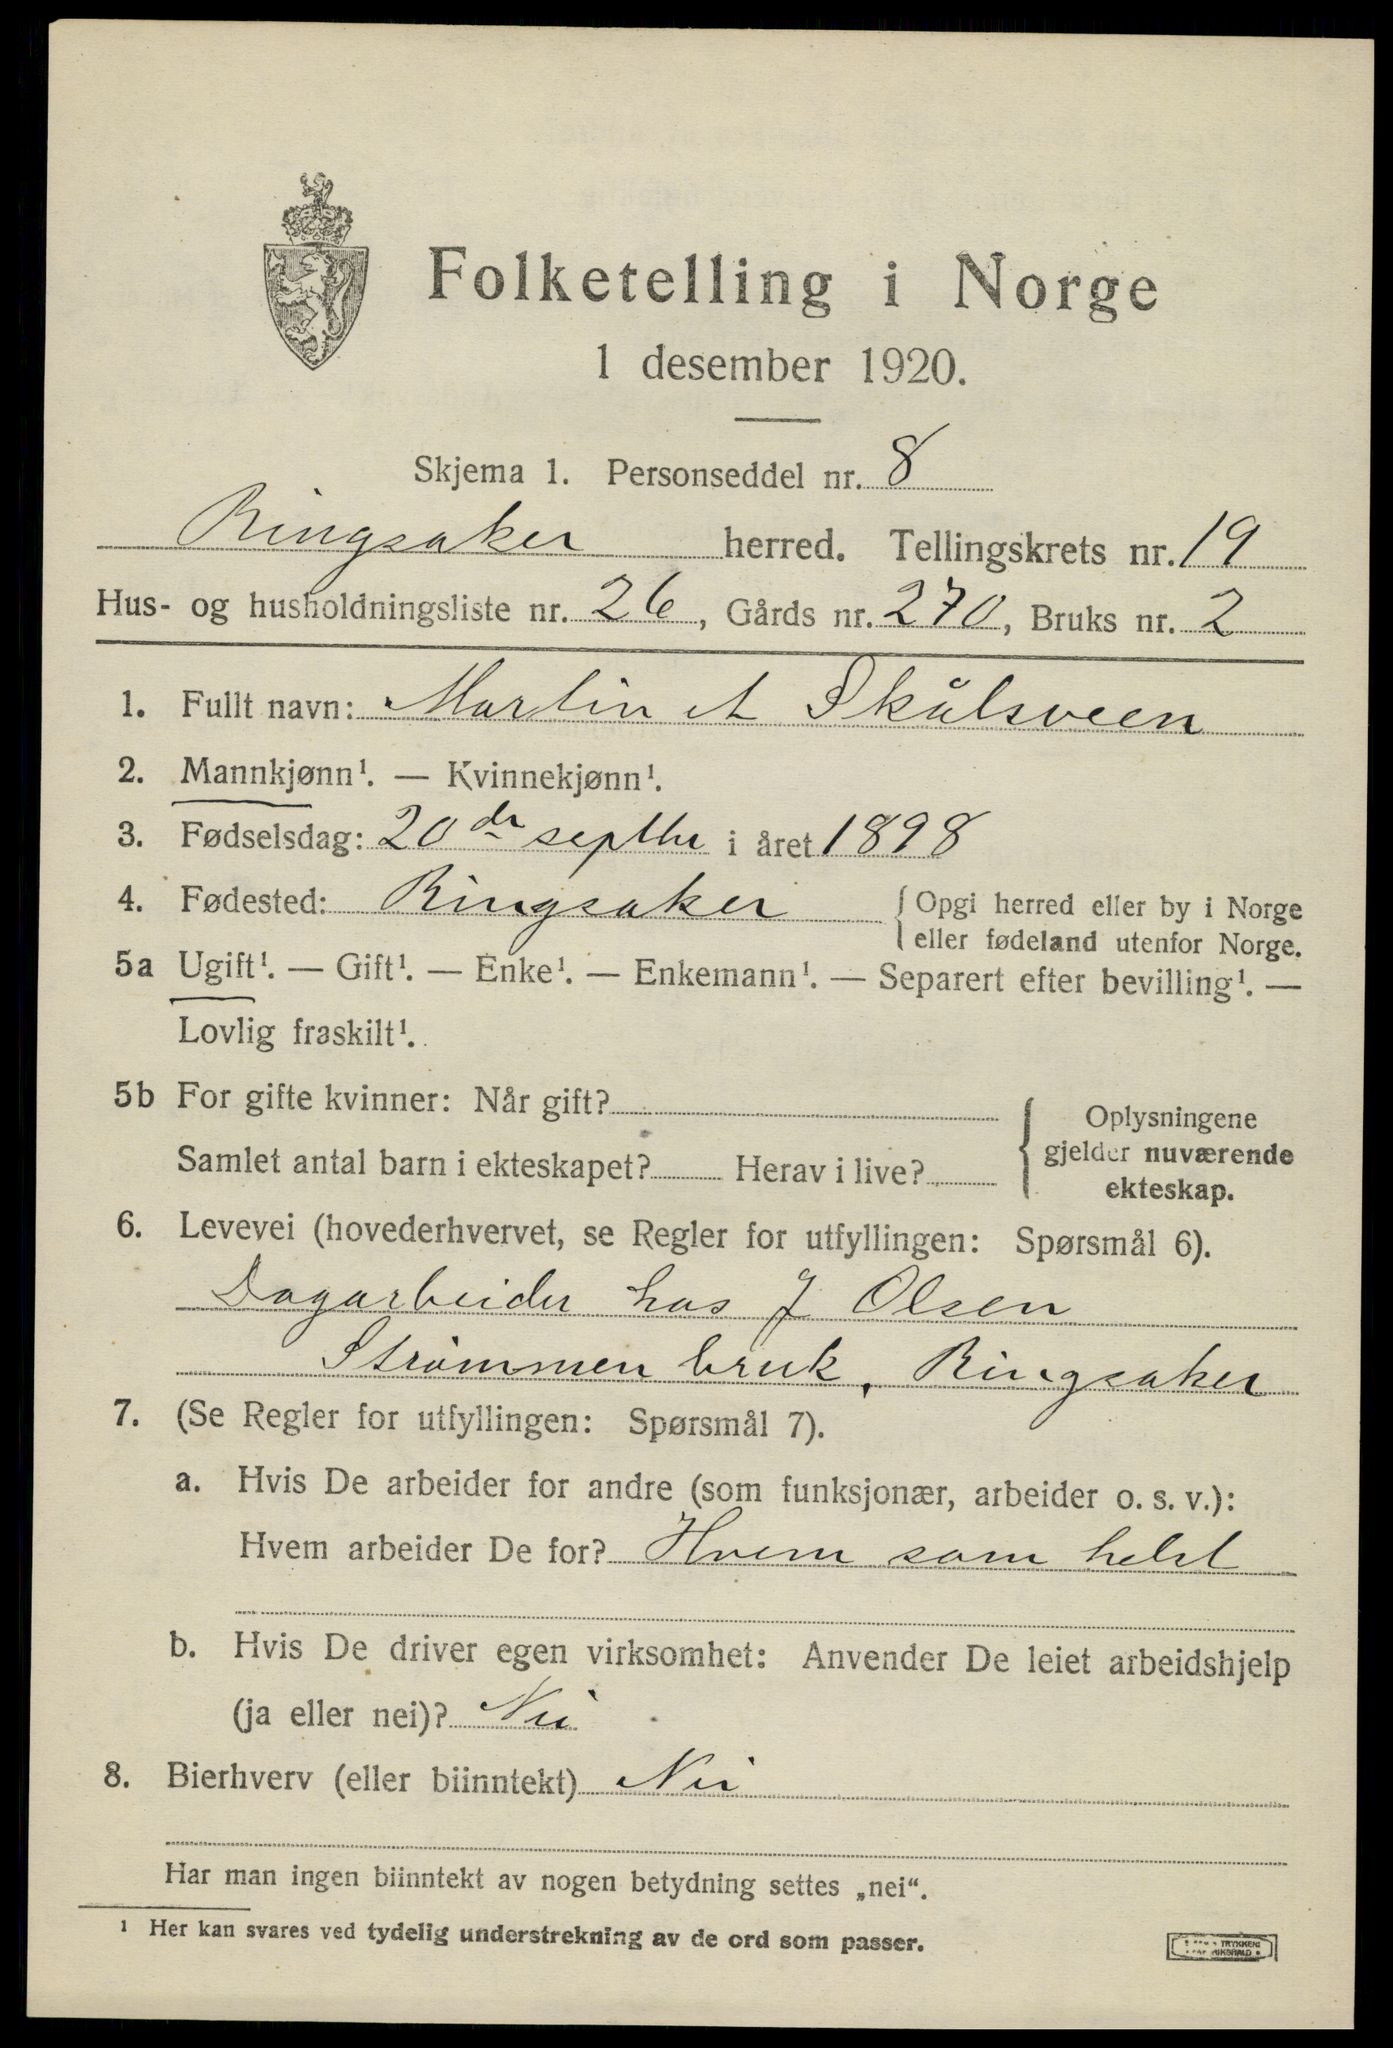 Folketelling i Norge
1 desember 1920.
Skjema 1. Personseddel nr. 8
Ringsaker herred. Tellingskrets nr. 19
Hus- og husholdningsliste nr. 26, Gårds nr. 270, Bruks nr. 2
1. Fullt navn: Martin A Skålsveen
2. Mannkjønn¹. — Kvinnekjønn¹.
3. Fødselsdag: 20de septbr i året 1898
4. Fødested: Ringsaker { Opgi herred eller by i Norge
eller fødeland utenfor Norge.
5a Ugift¹. — Gift¹. — Enke¹. — Enkemann¹. — Separert efter bevilling¹. —
Lovlig fraskilt¹.
5b For gifte kvinner: Når gift?
Samlet antal barn i ekteskapet? Herav i live?
Oplysningene
gjelder nuværende
ekteskap.
6. Levevei (hovederhvervet, se Regler for utfyllingen: Spørsmål 6).
Dagarbeider hos J Olsen
Strømmen bruk, Ringsaker
7. (Se Regler for utfyllingen: Spørsmål 7).
a. Hvis De arbeider for andre (som funksjonær, arbeider o. s. v.):
Hvem arbeider De for? Hvem som helst
b. Hvis De driver egen virksomhet: Anvender De leiet arbeidshjelp
(ja eller nei)? Nei
8. Bierhverv (eller biinntekt) Nei
Har man ingen biinntekt av nogen betydning settes „nei“.
¹ Her kan svares ved tydelig understrekning av de ord som passer.